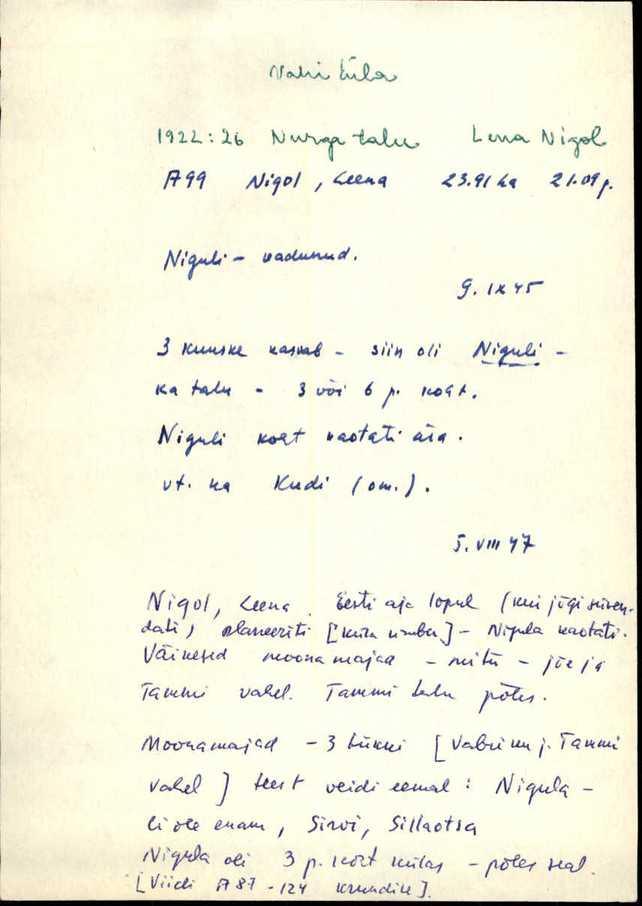 Vahi küla
1922:26 Nurga talu Lena Nigol
A99 Nigol, Leena 23.91 ha 21.09 p.
Niguli – kadunud.
9. IX 45
3 kuuske kasvab – siin oli Niguli –
ka talu – 3 või 6 p. koht.
Niguli koht kaotati ära.
vt. ka Kudi (om.).
5. VIII 47
Nigol, Leena. Eesti aja lõpul (kui jõgi süven-
dati, planeeriti [küla ümber] – Nigula kaotati.
Väikesed moonamajad – mitu – jõe ja
Tammi vahel. Tammi talu põles.
Moonamajad – 3 tükki [ j. Tammi
vahel] teest veidi eemal: Nigula –
ei ole enam, Sirvi, Sillaotsa
Nigula oli 3 p. koht külas – põles seal.
[Viidi A87 – 124 krundile].